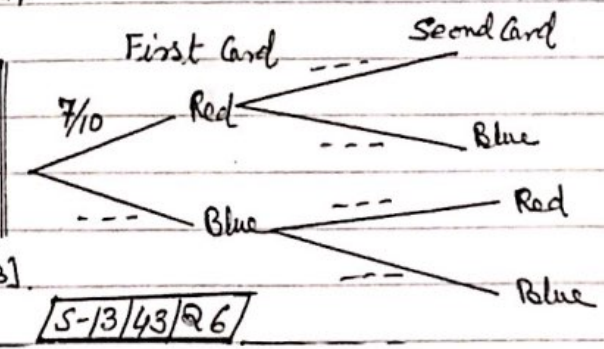 First Card
Second Card
7/10
Red
Blue
Red
Blue
Blue
3].
S-13/43/Q6